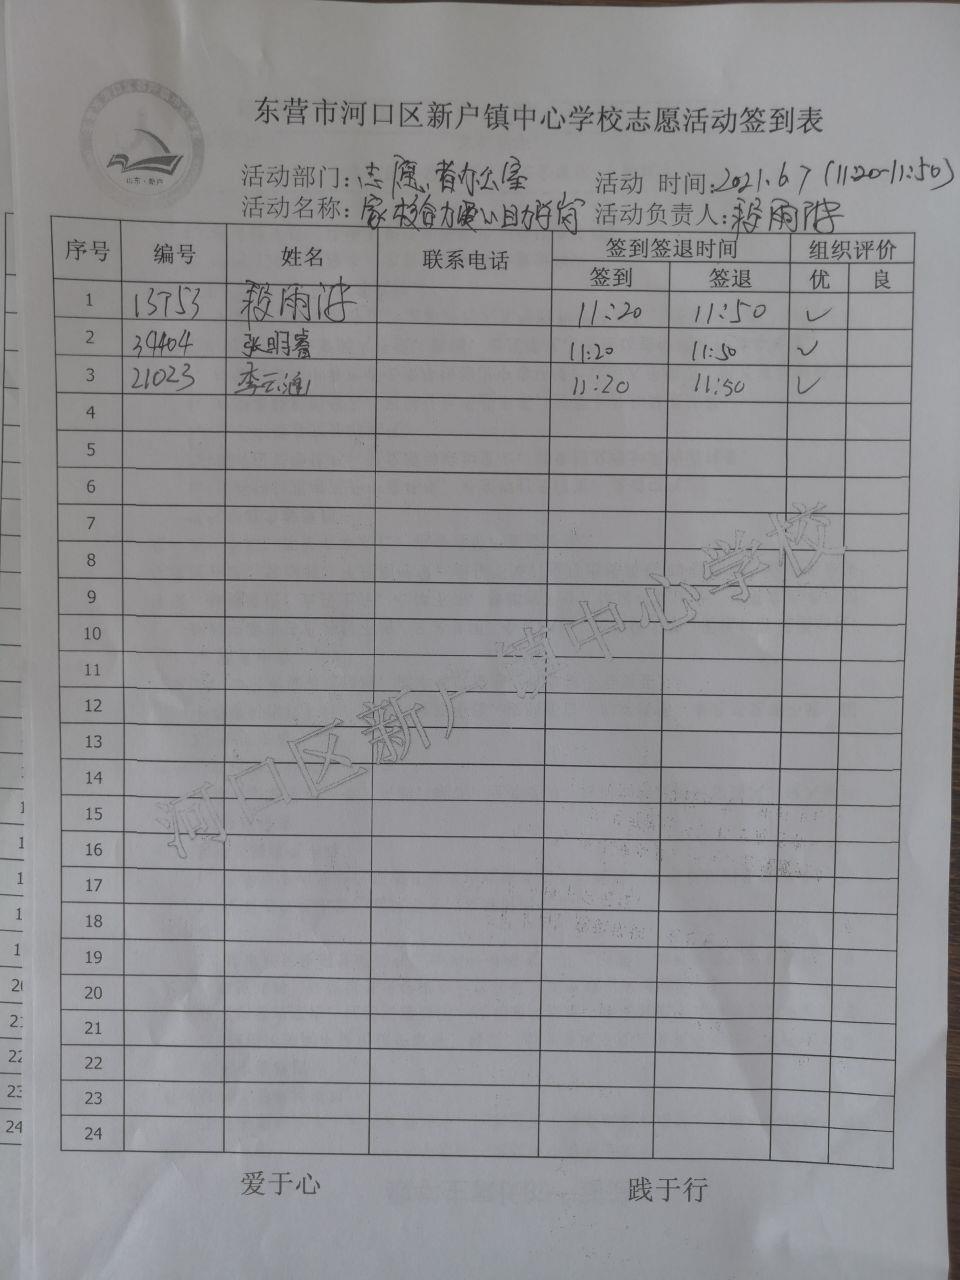 东营市河口区新户镇中心学校志愿活动签到表
山东·新户
活动部门:志愿者办公室 活动 时间:2021.6.7(11:20-11:50)
活动名称:家校合力 活动负责人:雨
序号 编号 姓名 联系电话 签到签退时间 组织评价
签到 签退 优 良
1 13753 雨 11:20 11:50 ✓
2 34404 张明睿 11:20 11:50 ✓
3 21023 李云涵 11:20 11:50 ✓
4
5
6
7
8
9
10
11
12
13
14
15
16
17
18
19
20
21
22
23
24
河口区新户镇中心学校
爱于心 践于行
20
21
22
23
24